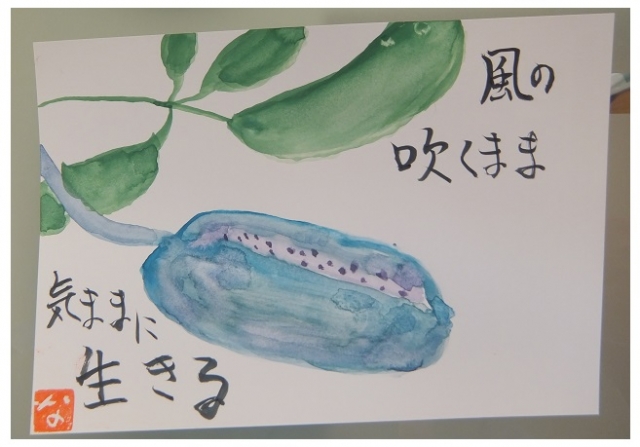 風の
吹くまま
気ままに
生きる
な